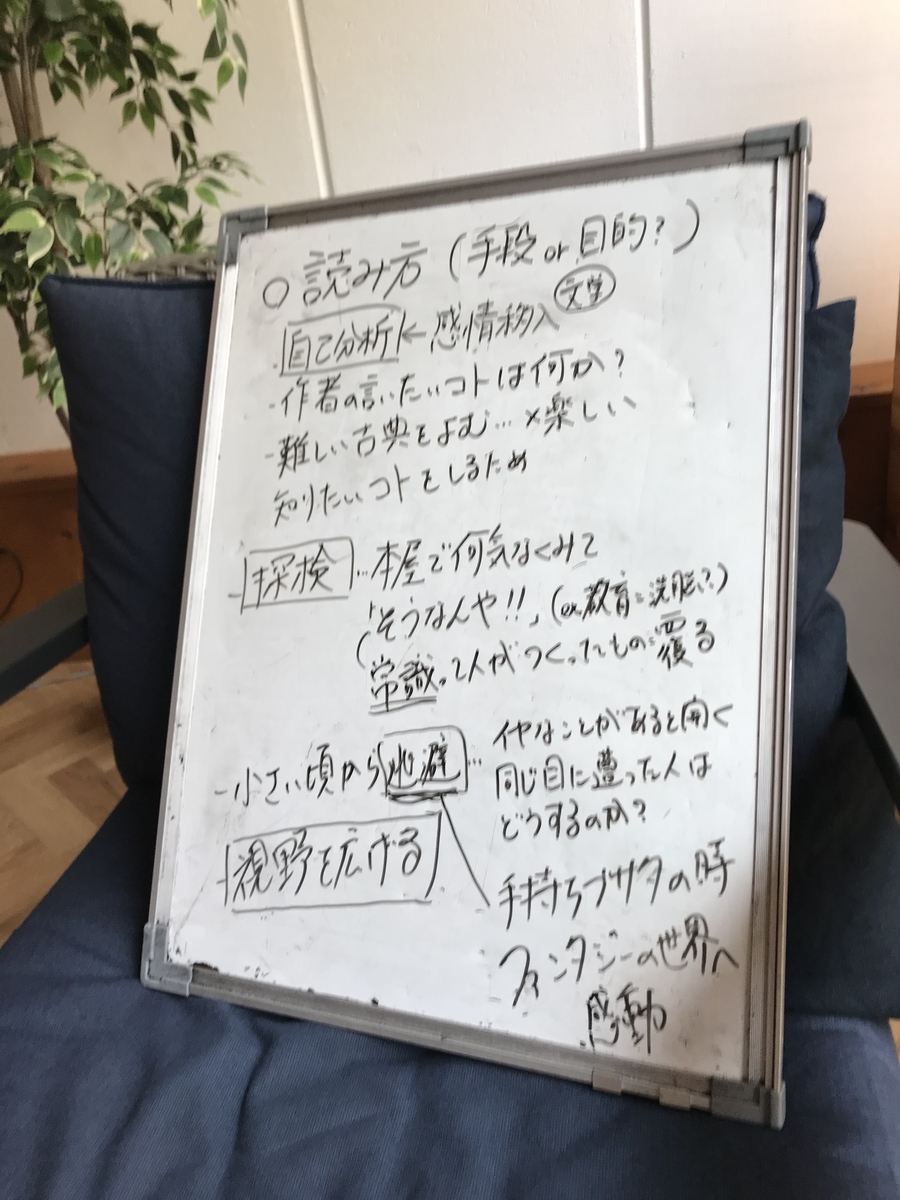 ○ 読み方 (手段 or 目的?)
・自己分析 ← 感情移入 文学
- 作者の言いたいコトは何か?
- 難しい古典をよむ… ×楽しい
知りたいコトをしるため
- 探検 … 本屋で何気なくみて
「そうなんや!!」 (ex 教育=洗脳?)
常識って人がつくったもの=覆る
- 小さい頃から逃避 …
イヤなことがあると開く
同じ目に遭った人は
どうするのか?
- 視野を広げる
手持ちブサタの時
ファンタジーの世界へ
感動